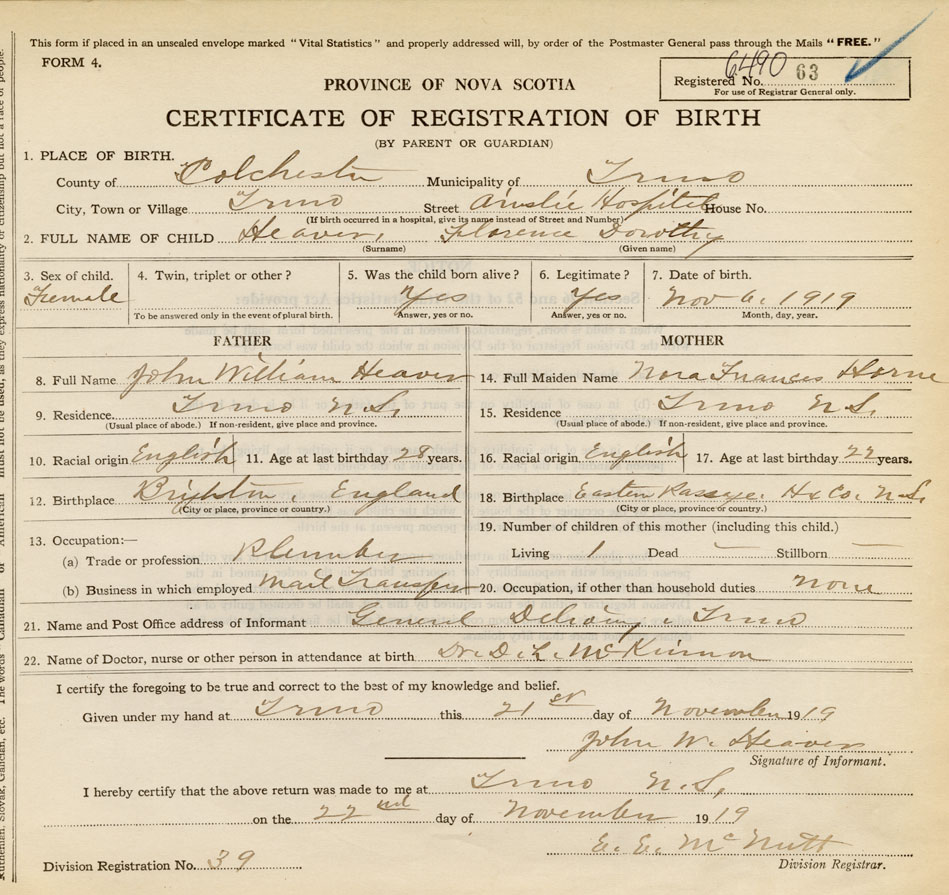 This form if placed in an unsealed envelope marked "Vital Statistics" and properly addressed will, by order of the Postmaster General pass through the Mails "FREE."
FORM 4.
6490 63
Registered No.
For use of Registrar General only.
PROVINCE OF NOVA SCOTIA
CERTIFICATE OF REGISTRATION OF BIRTH
(BY PARENT OR GUARDIAN)
1. PLACE OF BIRTH.
County of Colchester Municipality of Truro
City, Town or Village Truro Street Ainslie Hospital House No.
(If birth occurred in a hospital, give its name instead of Street and Number)
2. FULL NAME OF CHILD Heaver, Florence Dorothy
(Surname) (Given name)
3. Sex of child. 4. Twin, triplet or other? 5. Was the child born alive? 6. Legitimate? 7. Date of birth.
Female Yes Yes Nov 6. 1919
To be answered only in the event of plural birth. Answer, yes or no. Answer, yes or no. Month, day, year.
FATHER MOTHER
8. Full Name John William Heaver 14. Full Maiden Name Nora Frances Horne
9. Residence. Truro N.S. 15. Residence Truro N.S.
(Usual place of abode.) If non-resident, give place and province. (Usual place of abode.) If non-resident, give place and province.
10. Racial origin English 11. Age at last birthday 28 years. 16. Racial origin English 17. Age at last birthday 22 years.
12. Birthplace Brighton, England 18. Birthplace Eastern Passage. Hx Co. N.S.
(City or place, province or country.) (City or place, province or country.)
13. Occupation:— 19. Number of children of this mother (including this child.)
(a) Trade or profession Plumber Living 1 Dead — Stillborn —
(b) Business in which employed Mail Transfer 20. Occupation, if other than household duties None
21. Name and Post Office address of Informant General Delivery, Truro
22. Name of Doctor, nurse or other person in attendance at birth Dr. D. L. McKinnon
I certify the foregoing to be true and correct to the best of my knowledge and belief.
Given under my hand at Truro this 21st day of November 1919
John W. Heaver
Signature of Informant.
I hereby certify that the above return was made to me at Truro N.S.
on the 22nd day of November 1919
E. E. McNutt
Division Registration No. 39 Division Registrar.